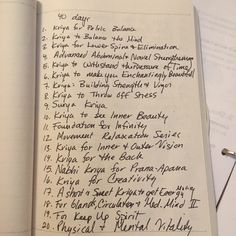 40 days
1. Kriya for Pelvic Balance
2. Kriya to Balance the Mind
3. Kriya for Lower Spine & Elimination
4. Advanced Abdominals Navel Strengthening
5. Kriya to Withstand the Pressure of Time
6. Kriya to make you Enchantingly Beautiful
7. Kriya: Building Strength & Vigor
8. Kriya to Throw Off Stress
9. Surya Kriya
10. Kriya to See Inner Beauty
11. Foundation for Infinity
12. Movement Relaxation Series
13. Kriya for Inner & Outer Vision
14. Kriya for the Back
15. Nabhi Kriya for Prana-Apana
16. Kriya for Creativity
17. A Short & Sweet Kriya to get Energy
18. For Glands, Circulation & Med. Mind II
19. For Keep Up Spirit
20. Physical & Mental Vitality